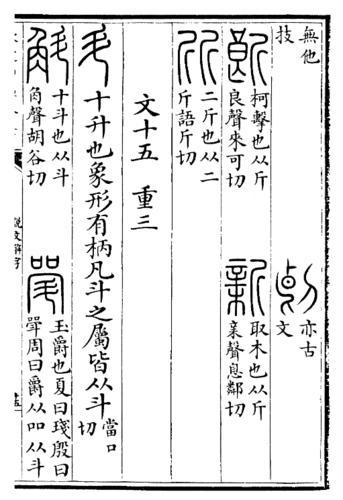 無他
技
亦古
文
柯擊也从斤
良聲來可切
新
取木也从斤
亲聲息鄰切
斦
二斤也从二
斤語斤切
文十五　重三
斗
十升也象形有柄凡斗之屬皆从斗
當口
切
斛
十斗也从斗
角聲胡谷切
斝
玉爵也夏曰琖殷曰
斝周曰爵从吅从斗
說文解字